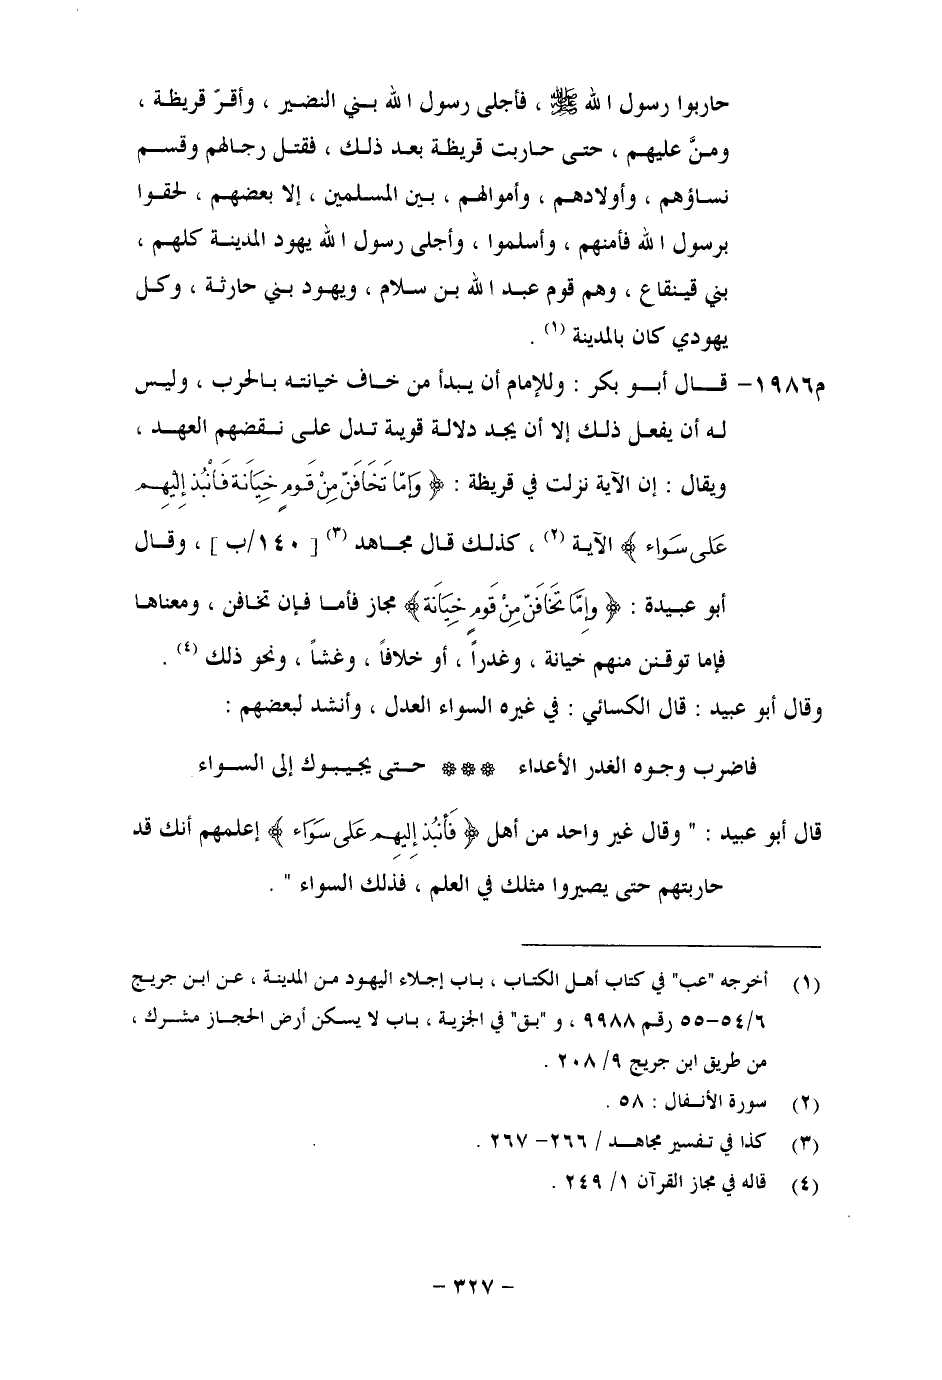 حاربوا رسول الله ﷺ ، فأجلى رسول الله بني النضير ، وأقرّ قريظة ،
ومنَّ عليهم ، حتى حاربت قريظة بعد ذلك ، فقتل رجالهم وقسم
نساؤهم ، وأولادهم ، وأموالهم ، بين المسلمين ، إلا بعضهم ، لحقوا
برسول الله فأمنهم ، وأسلموا ، وأجلى رسول الله يهود المدينة كلهم ،
بني قينقاع ، وهم قوم عبد الله بن سلام ، ويهود بني حارثة ، وكل
يهودي كان بالمدينة (١) .
م١٩٨٦- قال أبو بكر : وللإمام أن يبدأ من خاف خيانته بالحرب ، وليس
له أن يفعل ذلك إلا أن يجد دلالة قوية تدل على نقضهم العهد ،
ويقال : إن الآية نزلت في قريظة : ﴿ وَإِمَّا تَخَافَنَّ مِنْ قَومٍ خِيَانَة فَأَنْبُذ إِلَيْهِم
عَلَى سَوَاء ﴾ الآية (٢) ، كذلك قال مجاهد (٣) [ ١٤٠/ب ] ، وقال
أبو عبيدة : ﴿ وإِمَّا تَخَافَنَّ مِنْ قَومٍ خِيَانَة ﴾ مجاز فأما فإن تخافن ، ومعناها
فإما توقنن منهم خيانة ، وغدراً ، أو خلافاً ، وغشاً ، ونحو ذلك (٤) .
وقال أبو عبيد : قال الكسائي : في غيره السواء العدل ، وأنشد لبعضهم :
فاضرب وجوه الغدر الأعداء *** حتى يجيبوك إلى السواء
قال أبو عبيد : " وقال غير واحد من أهل ﴿ فَأَنْبُذ إِلَيهِم عَلى سَوَاء ﴾ إعلمهم أنك قد
حاربتهم حتى يصيروا مثلك في العلم ، فذلك السواء " .
(١) أخرجه "عب" في كتاب أهل الكتاب ، باب إجلاء اليهود من المدينة ، عن ابن جريج
٦/٥٤-٥٥ رقم ٩٩٨٨ ، و "بق" في الجزية ، باب لا يسكن أرض الحجاز مشرك ،
من طريق ابن جريج ٩/ ٢٠٨ .
(٢) سورة الأنفال : ٥٨ .
(٣) كذا في تفسير مجاهد / ٢٦٦- ٢٦٧ .
(٤) قاله في مجاز القرآن ١/ ٢٤٩ .
- ٣٢٧ -